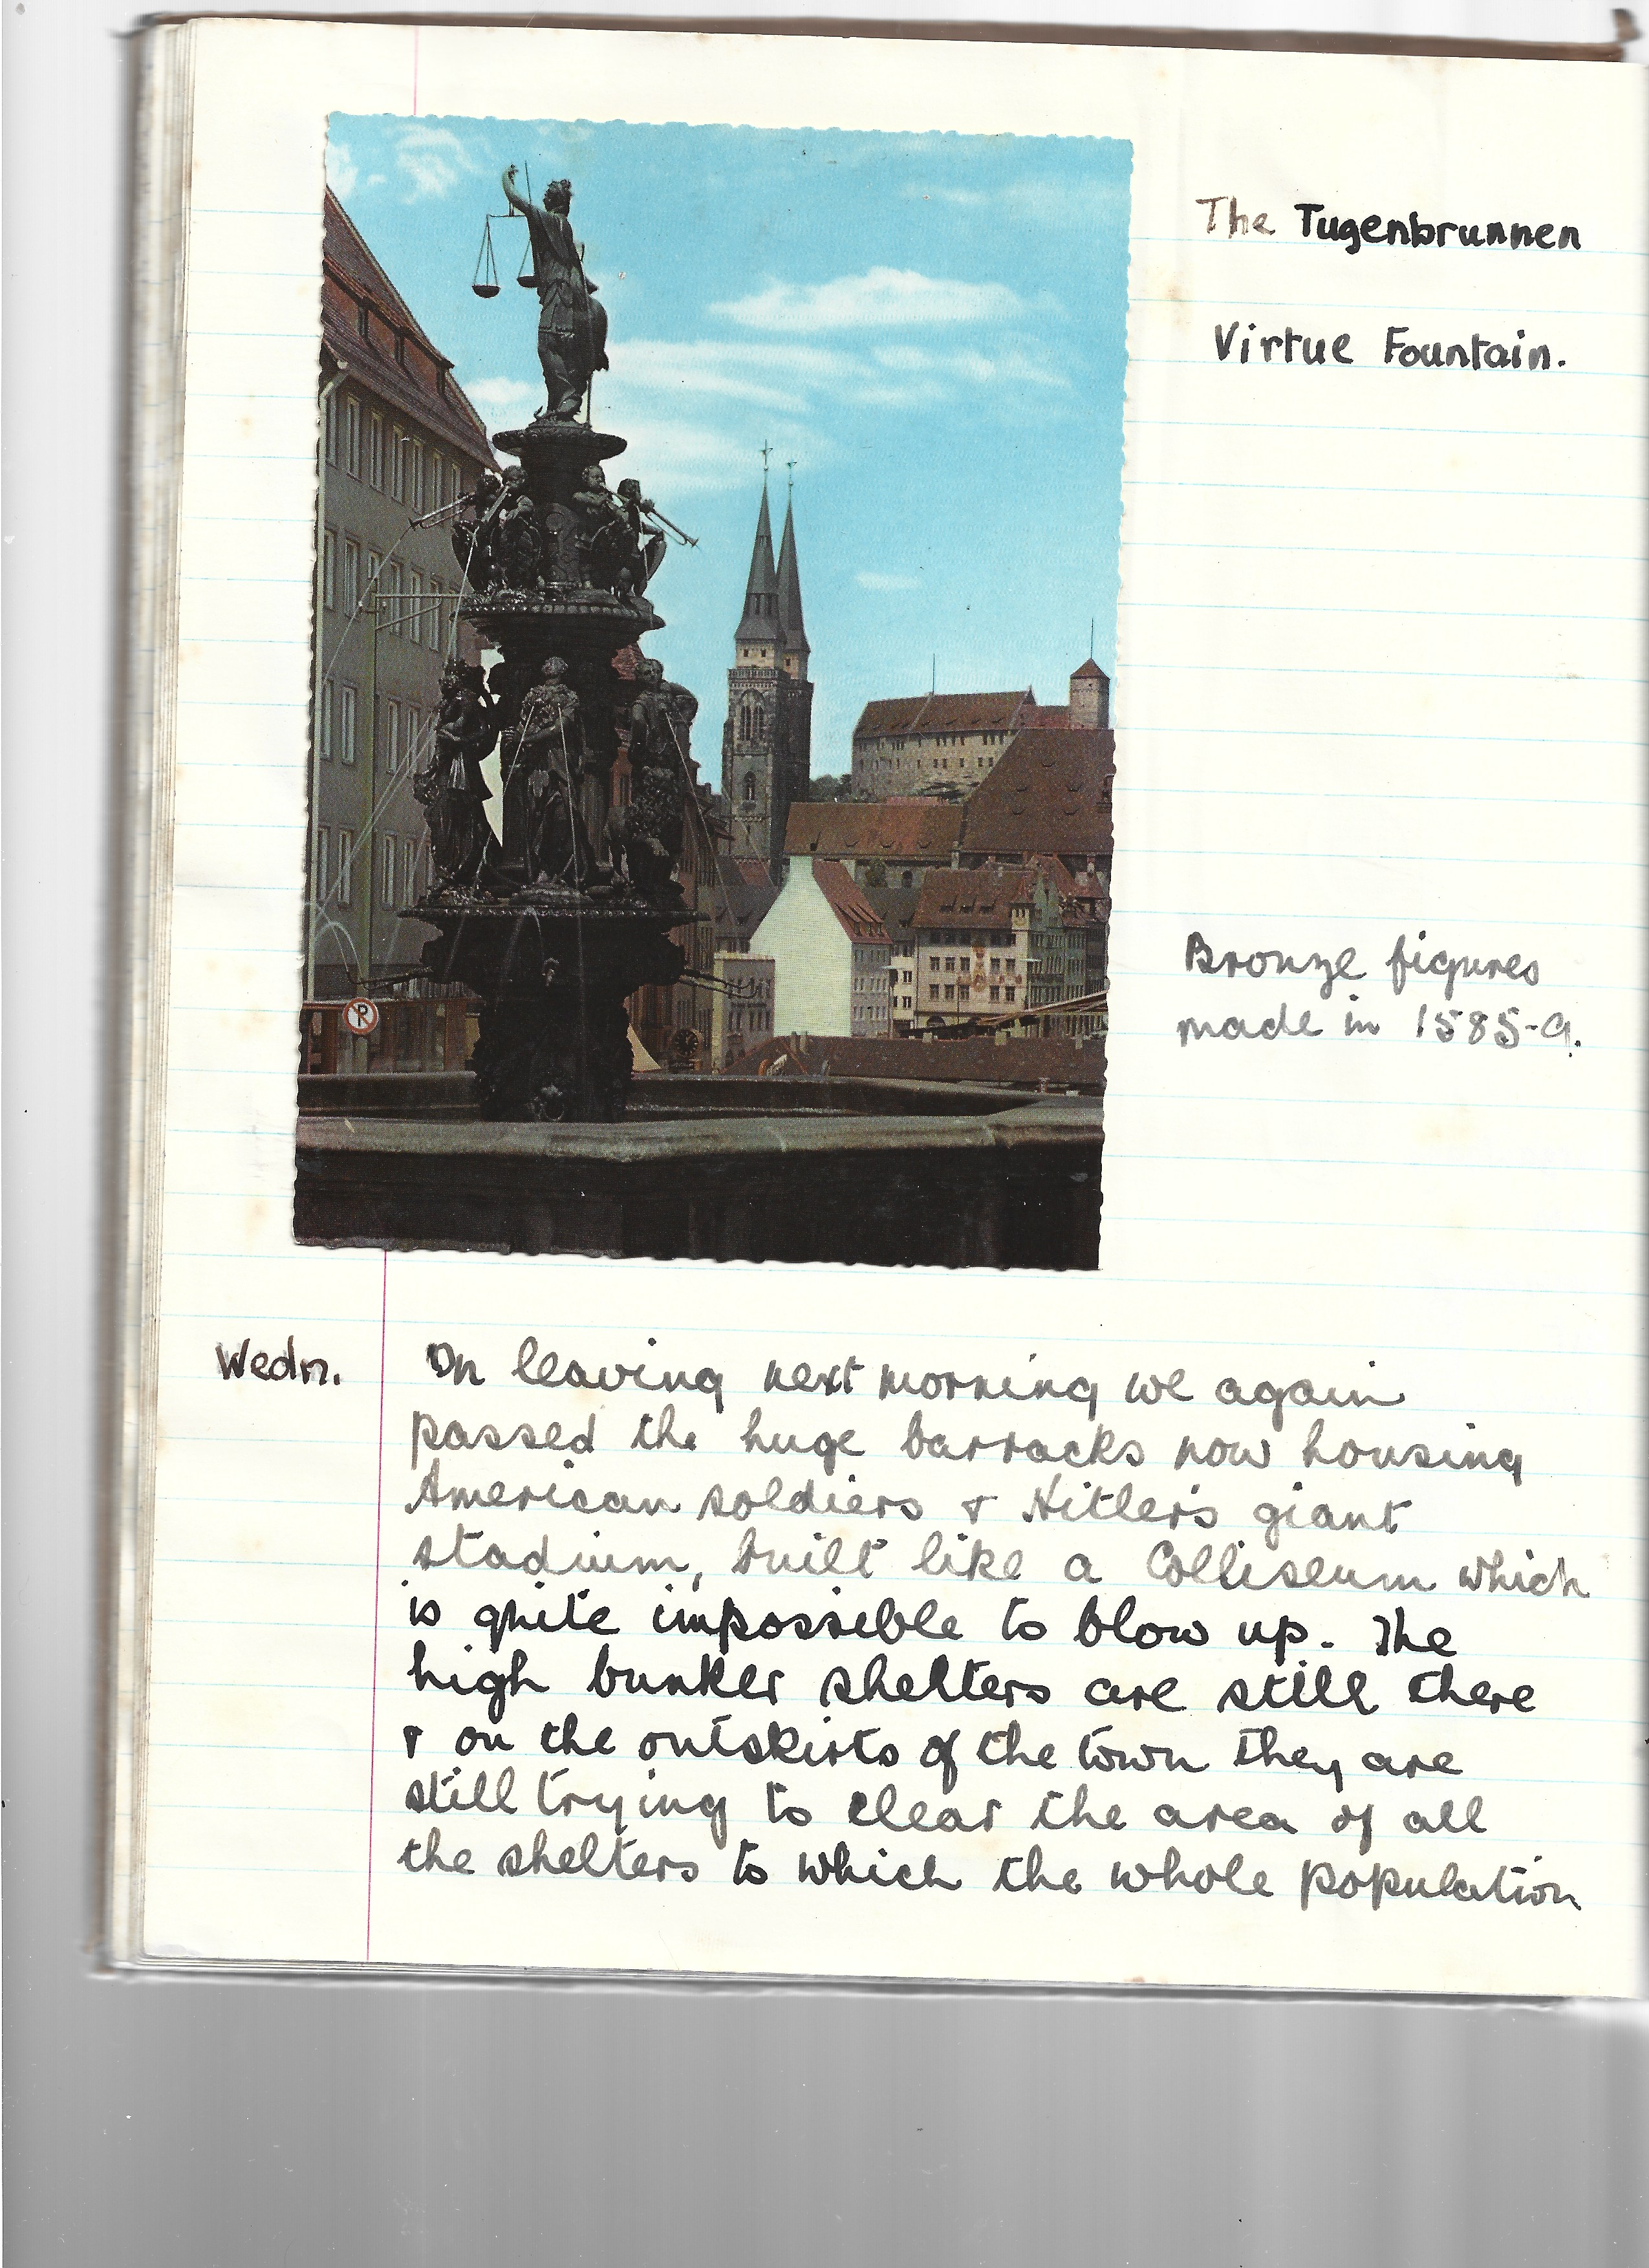 The Tugenbrunnen
Virtue Fountain.
Bronze figures
made in 1585-9.
Wedn.
On leaving next morning we again
passed the huge barracks now housing
American soldiers & Hitler's giant
stadium, built like a Colliseum which
is quite impossible to blow up. The
high bunker shelters are still there
& on the outskirts of the town they are
still trying to clear the area of all
the shelters to which the whole population